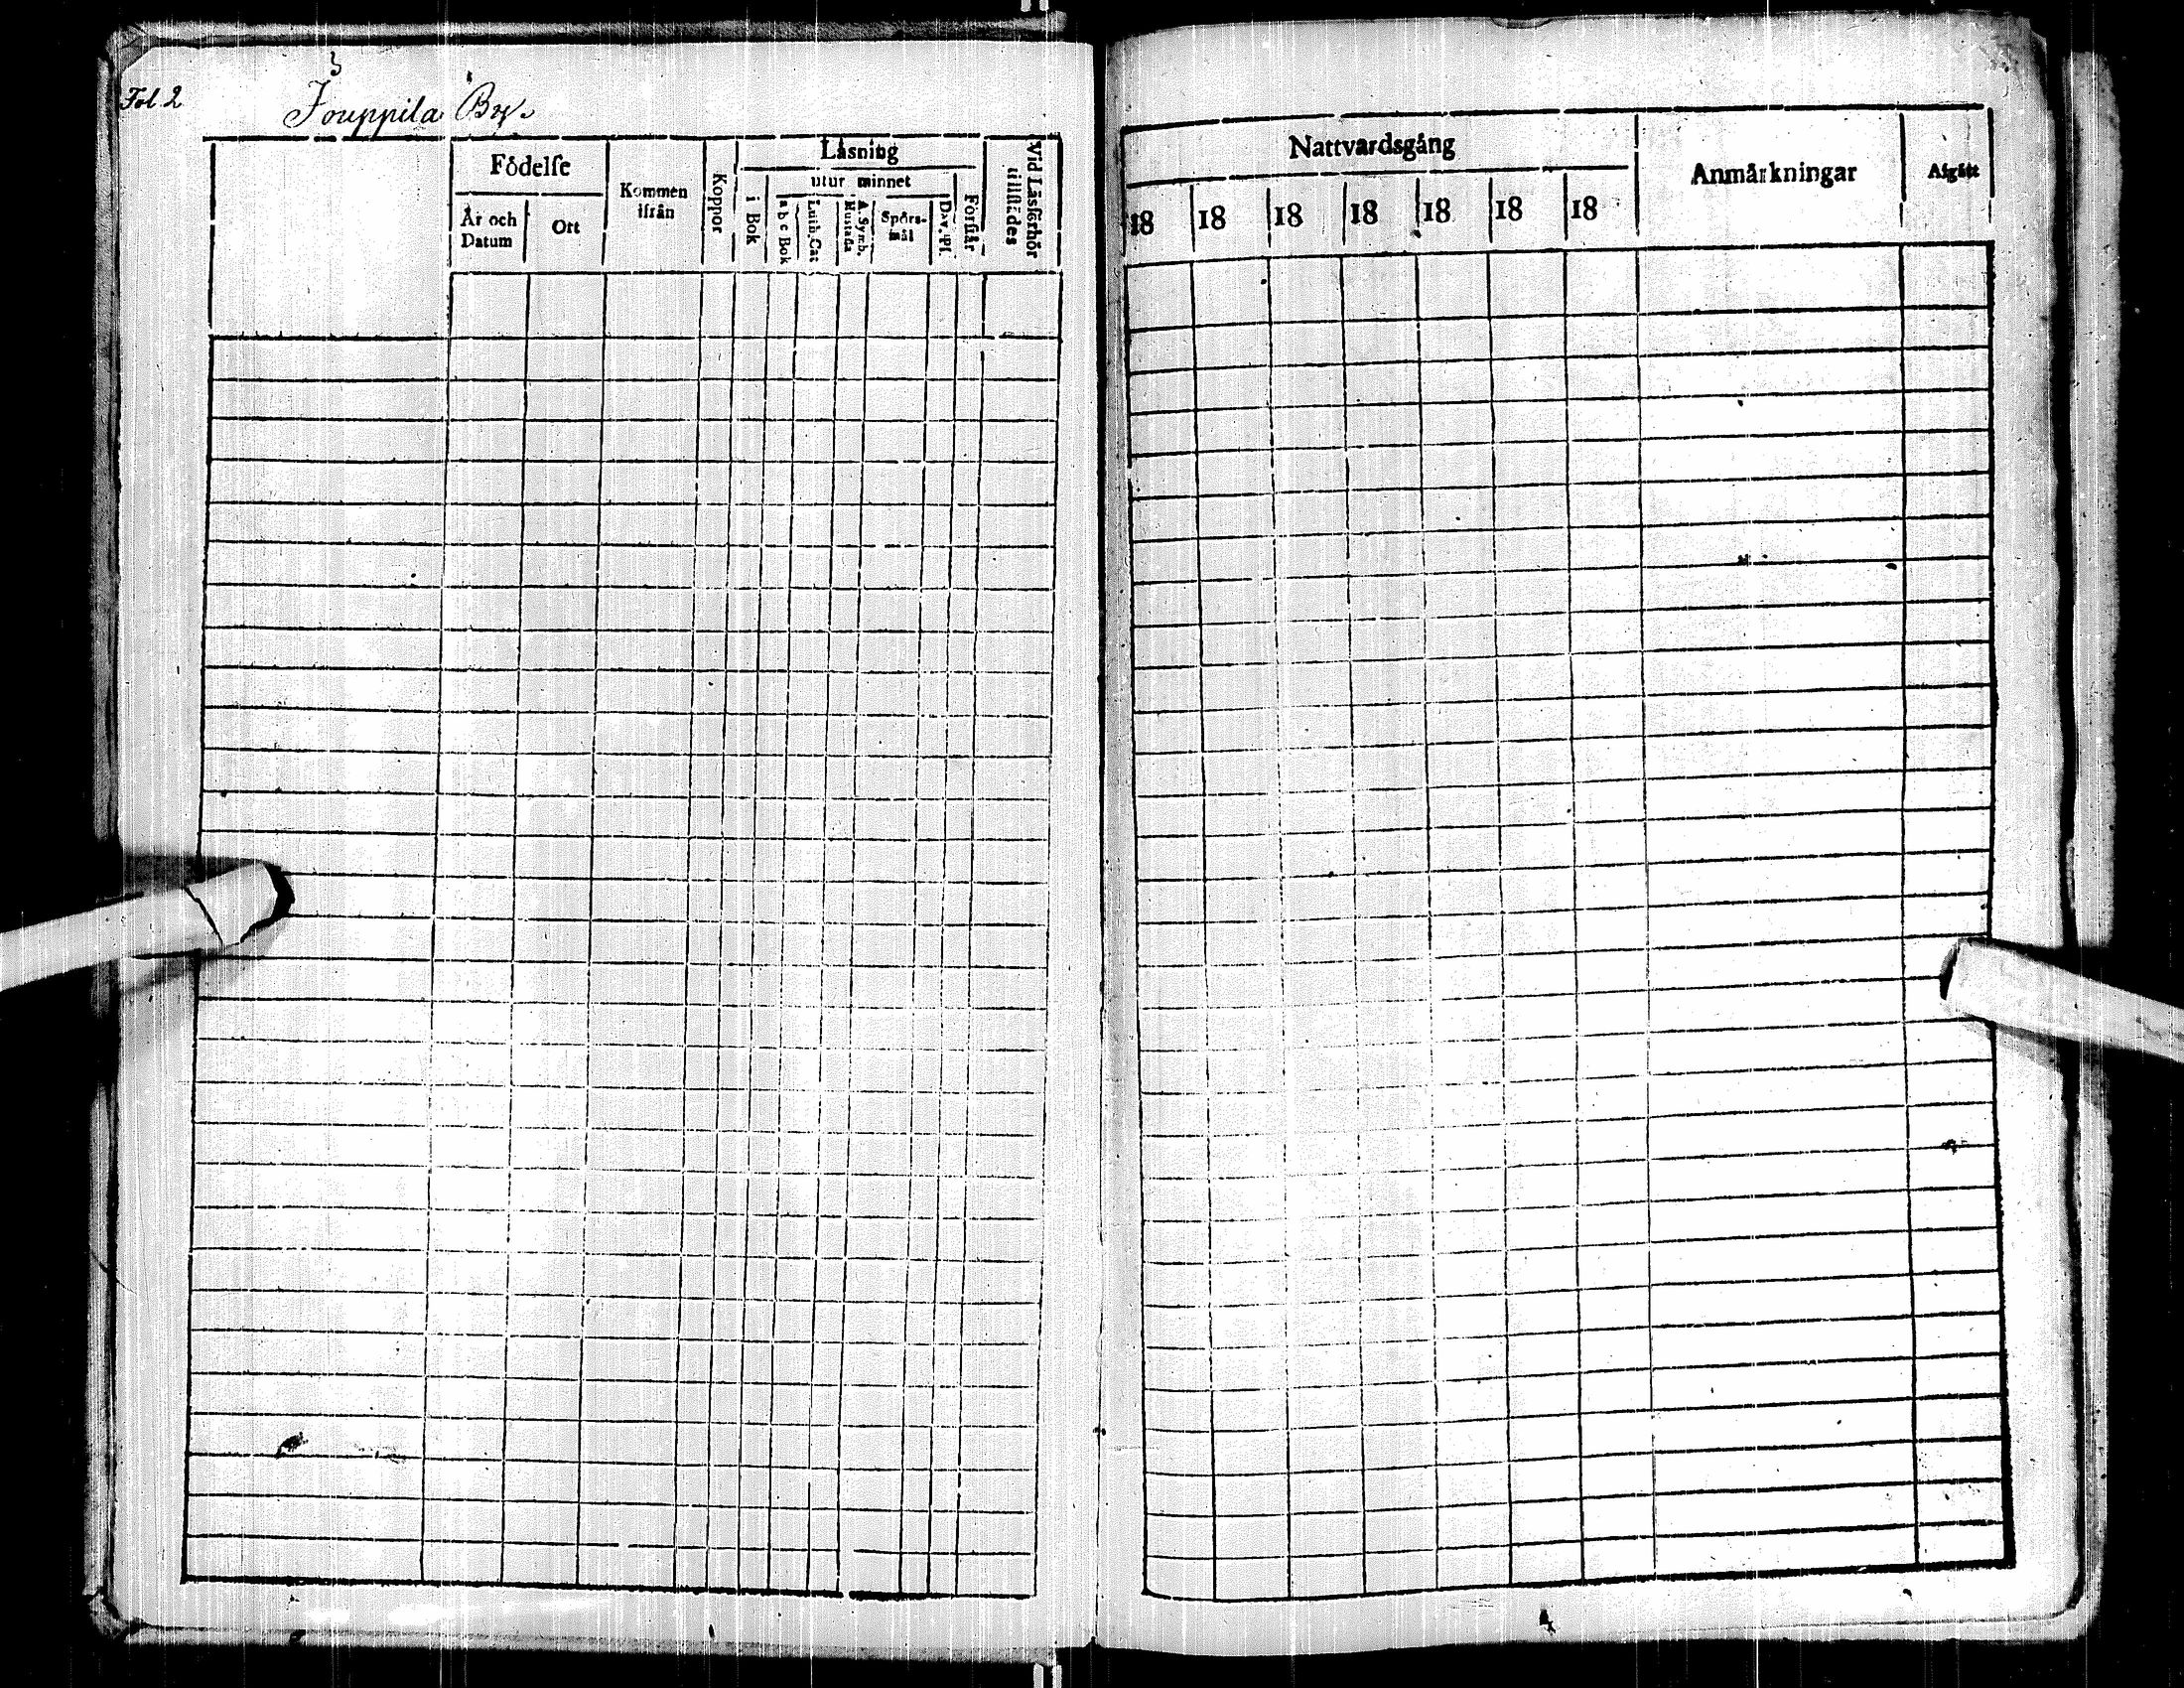 Fol. 2
Jouppila By.
Födelse
År och Datum
Ort
Kommen ifrån
Koppor
Läsning
i Bok
utur minnet
a b c Bok
Luth. Cat
A. Symb. Hustafla
Spörs-mål
Dav. Ps.
Förstår
Vid Läsförhör tillstädes
Nattvardsgång
18 18 18 18 18 18 18
Anmärkningar
Afgått